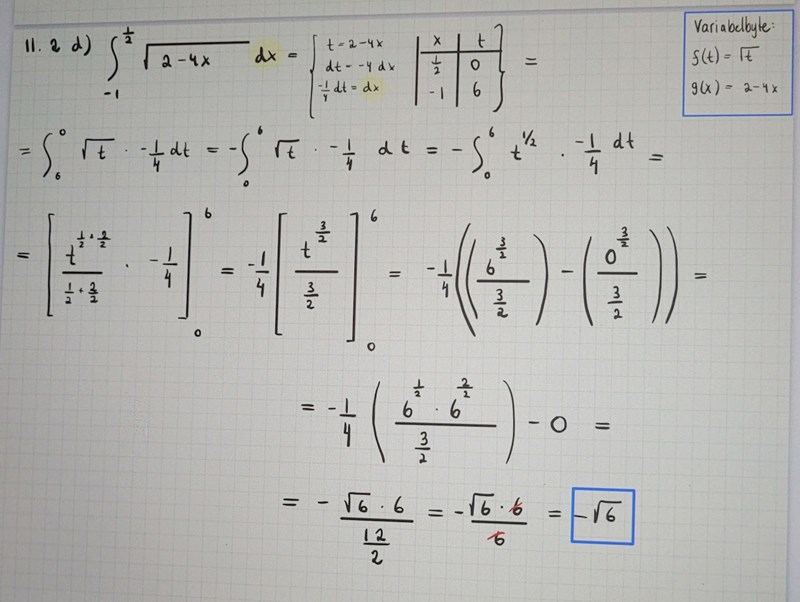 11. 2 d) ∫_{-1}^{1/2} √(2-4x) dx = { t = 2-4x, dt = -4 dx, -1/4 dt = dx | x | t | 1/2 | 0 | -1 | 6 } =
Variabelbyte:
f(t) = √t
g(x) = 2-4x
= ∫_6^0 √t · -1/4 dt = -∫_0^6 √t · -1/4 dt = -∫_0^6 t^{1/2} · -1/4 dt =
= [ t^{1/2 + 2/2} / (1/2 + 2/2) · -1/4 ]_0^6 = -1/4 [ t^{3/2} / (3/2) ]_0^6 = -1/4 (( 6^{3/2} / (3/2) ) - ( 0^{3/2} / (3/2) )) =
= -1/4 ( 6^{1/2} · 6^{2/2} / (3/2) ) - 0 =
= - √6 · 6 / (12/2) = - √6 · 6 / 6 = -√6